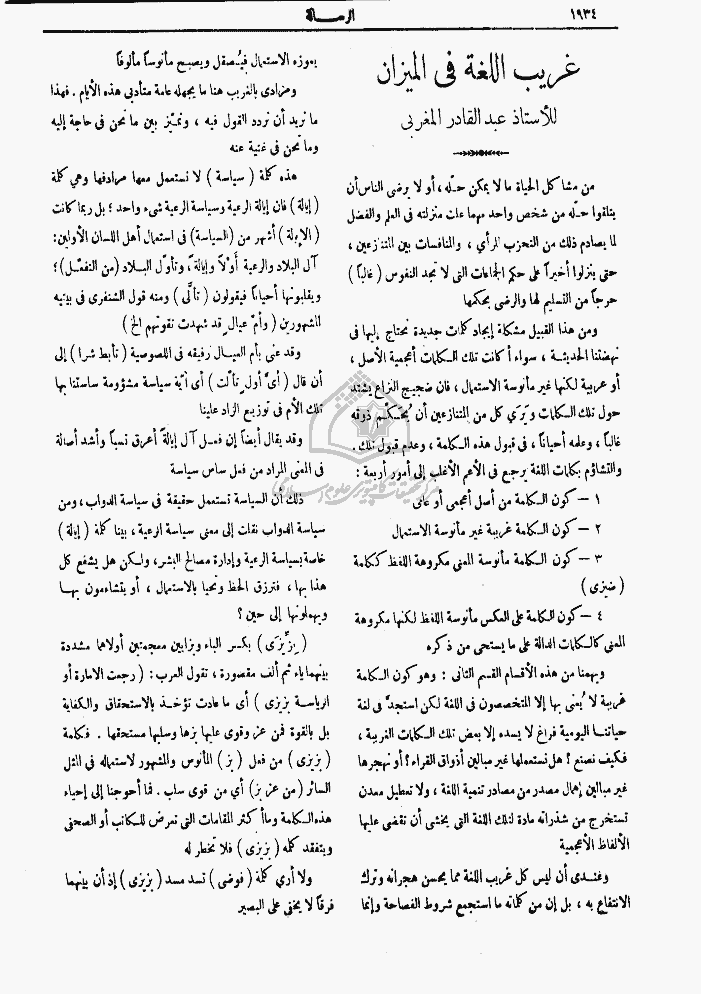 ١٩٣٤
الرسالة
غريب اللغة فى الميزان
للأستاذ عبد القادر المغربى
من مشاكل الحياة ما لا يمكن حلّه، أو لا يرضى الناس أن
يتلقوا حلّه من شخص واحد مهما علت منزلته في العلم والفضل
لما يصادم ذلك من التحزب الرأي، والمنافسات بين المتنازعين،
حتى ينزلوا أخيراً على حكم الجماعات التى لا تجد النفوس (غالباً)
حرجاً من التسليم لها والرضى بحكمها
ومن هذا القبيل مشكلة إيجاد كلمات جديدة نحتاج إليها فى
نهضتنا الحديثة، سواء أكانت تلك الكلمات أعجمية الأصل،
أو عربية لكنها غير مأنوسة الاستعمال، فان ضجيج النزاع يشتد
حول تلك الكلمات ويَرَى كل من المتنازعين أن يُحكّم ذوقه
غالباً، وعلمه أحياناً، فى قبول هذه الكلمة، وعدم قبول تلك.
والتشاؤم بكلمات اللغة يرجع فى الأعم الأغلب إلى أمور أربعة:
١ — كون الكلمة من أصل أعجمى أو عامى
٢ — كون الكلمة غريبة غير مأنوسة الاستعمال
٣ — كون الكلمة مأنوسة المعنى مكروهة اللفظ ككلمة
(ضيزى)
٤ — كون الكلمة على العكس مأنوسة اللفظ لكنها مكروهة
المعنى كالكلمات الدالة على ما يستحى من ذكره
ويهمنا من هذه الأقسام القسم الثانى: وهو كون الكلمة
غريبة لا يُعنى بها إلا المتخصصون فى اللغة لكن استجدَّ فى لغة
حياتنا اليومية فراغ لا يسده إلا بعض تلك الكلمات الغريبة،
فكيف نصنع؟ هل نستعملها غير مبالين أذواق القراء؟ أو نهجرها
غير مبالين إهمال مصدر من مصادر تنمية اللغة، ولا تعطيل معدن
تستخرج من شذراته مادة لتلك اللغة التى يخشى أن تقضى عليها
الألفاظ الأعجمية
وعندى أن ليس كل غريب اللغة مما يحسن هجرانه وترك
الانتفاع به، بل إن من كلماته ما استجمع شروط الفصاحة وإنما
يعوزه الاستعمال فيُصقل ويصبح مأنوساً مألوفاً
ومرادى بالغريب هنا ما يجهله عامة متأدبى هذه الأيام. فهذا
ما نريد أن نردد القول فيه، ونميّز بين ما نحن فى حاجة إليه
وما نحن فى غنية عنه
هذه كلمة (سياسة) لا نستعمل معها مرادفها وهي كلمة
(إيالة) فان إيالة الرعية وسياسة الرعية شىء واحد؛ بل ربما كانت
(الايالة) أشهر من (السياسة) فى استعمال أهل اللسان الأولين:
آل البلاد والرعية أوْلاً وإيالة، وتأوّل البلاد (من التفعّل)؛
ويقلبونها أحياناً فيقولون (تألّى) ومنه قول الشنفرى فى بيتيه
المشهورين (وأم عيال قد شهدت تقوتهم الخ)
وقد عنى بأم العيال رفيقه فى اللصوصية (تأبط شرا) إلى
أن قال (أىَّ أول تألت) أى أيّة سياسة مشؤومة ساستنا بها
تلك الأم فى توزيع الزاد علينا
وقد يقال أيضاً إن فعل آل إيالة أعرق نسباً وأشد أصالة
فى المعنى المراد من فعل ساس سياسة
ذلك أن السياسة تستعمل حقيقة فى سياسة الدواب، ومن
سياسة الدواب نقلت إلى معنى سياسة الرعية، بينا كلمة (إيالة)
خاصة بسياسة الرعية وإدارة مصالح البشر، ولكن هل يشفع كل
هذا بها، فترزق الحظ وتحيا بالاستعمال، أو يتشاءمون بها
ويهملونها إلى حين؟
(بِزِّيزَى) بكسر الباء وبزايين معجمتين أولاهما مشددة
بينهما ياء ثم ألف مقصورة، تقول العرب: (رجعت الامارة أو
الرياسة بزيزى) أى ما عادت تؤخذ بالاستحقاق والكفاية
بل بالقوة فمن عز وقوى عليها بزها وسلبها مستحقها. فكلمة
(بزيزى) من فعل (بز) المأنوس والمشهور لاستعماله فى المثل
السائر (من عز بز) أي من قوى سلب. فما أحوجنا إلى إحياء
هذه الكلمة وما أكثر المقامات التى تعرض للكاتب أو الصحفى
ويتفقد كلمه (بزيزى) فلا تخطر له
ولا أري كلمة (فوضى) تسد مسد (بزيزى) إذ أن بينهما
فرقاً لا يخفى على البصير